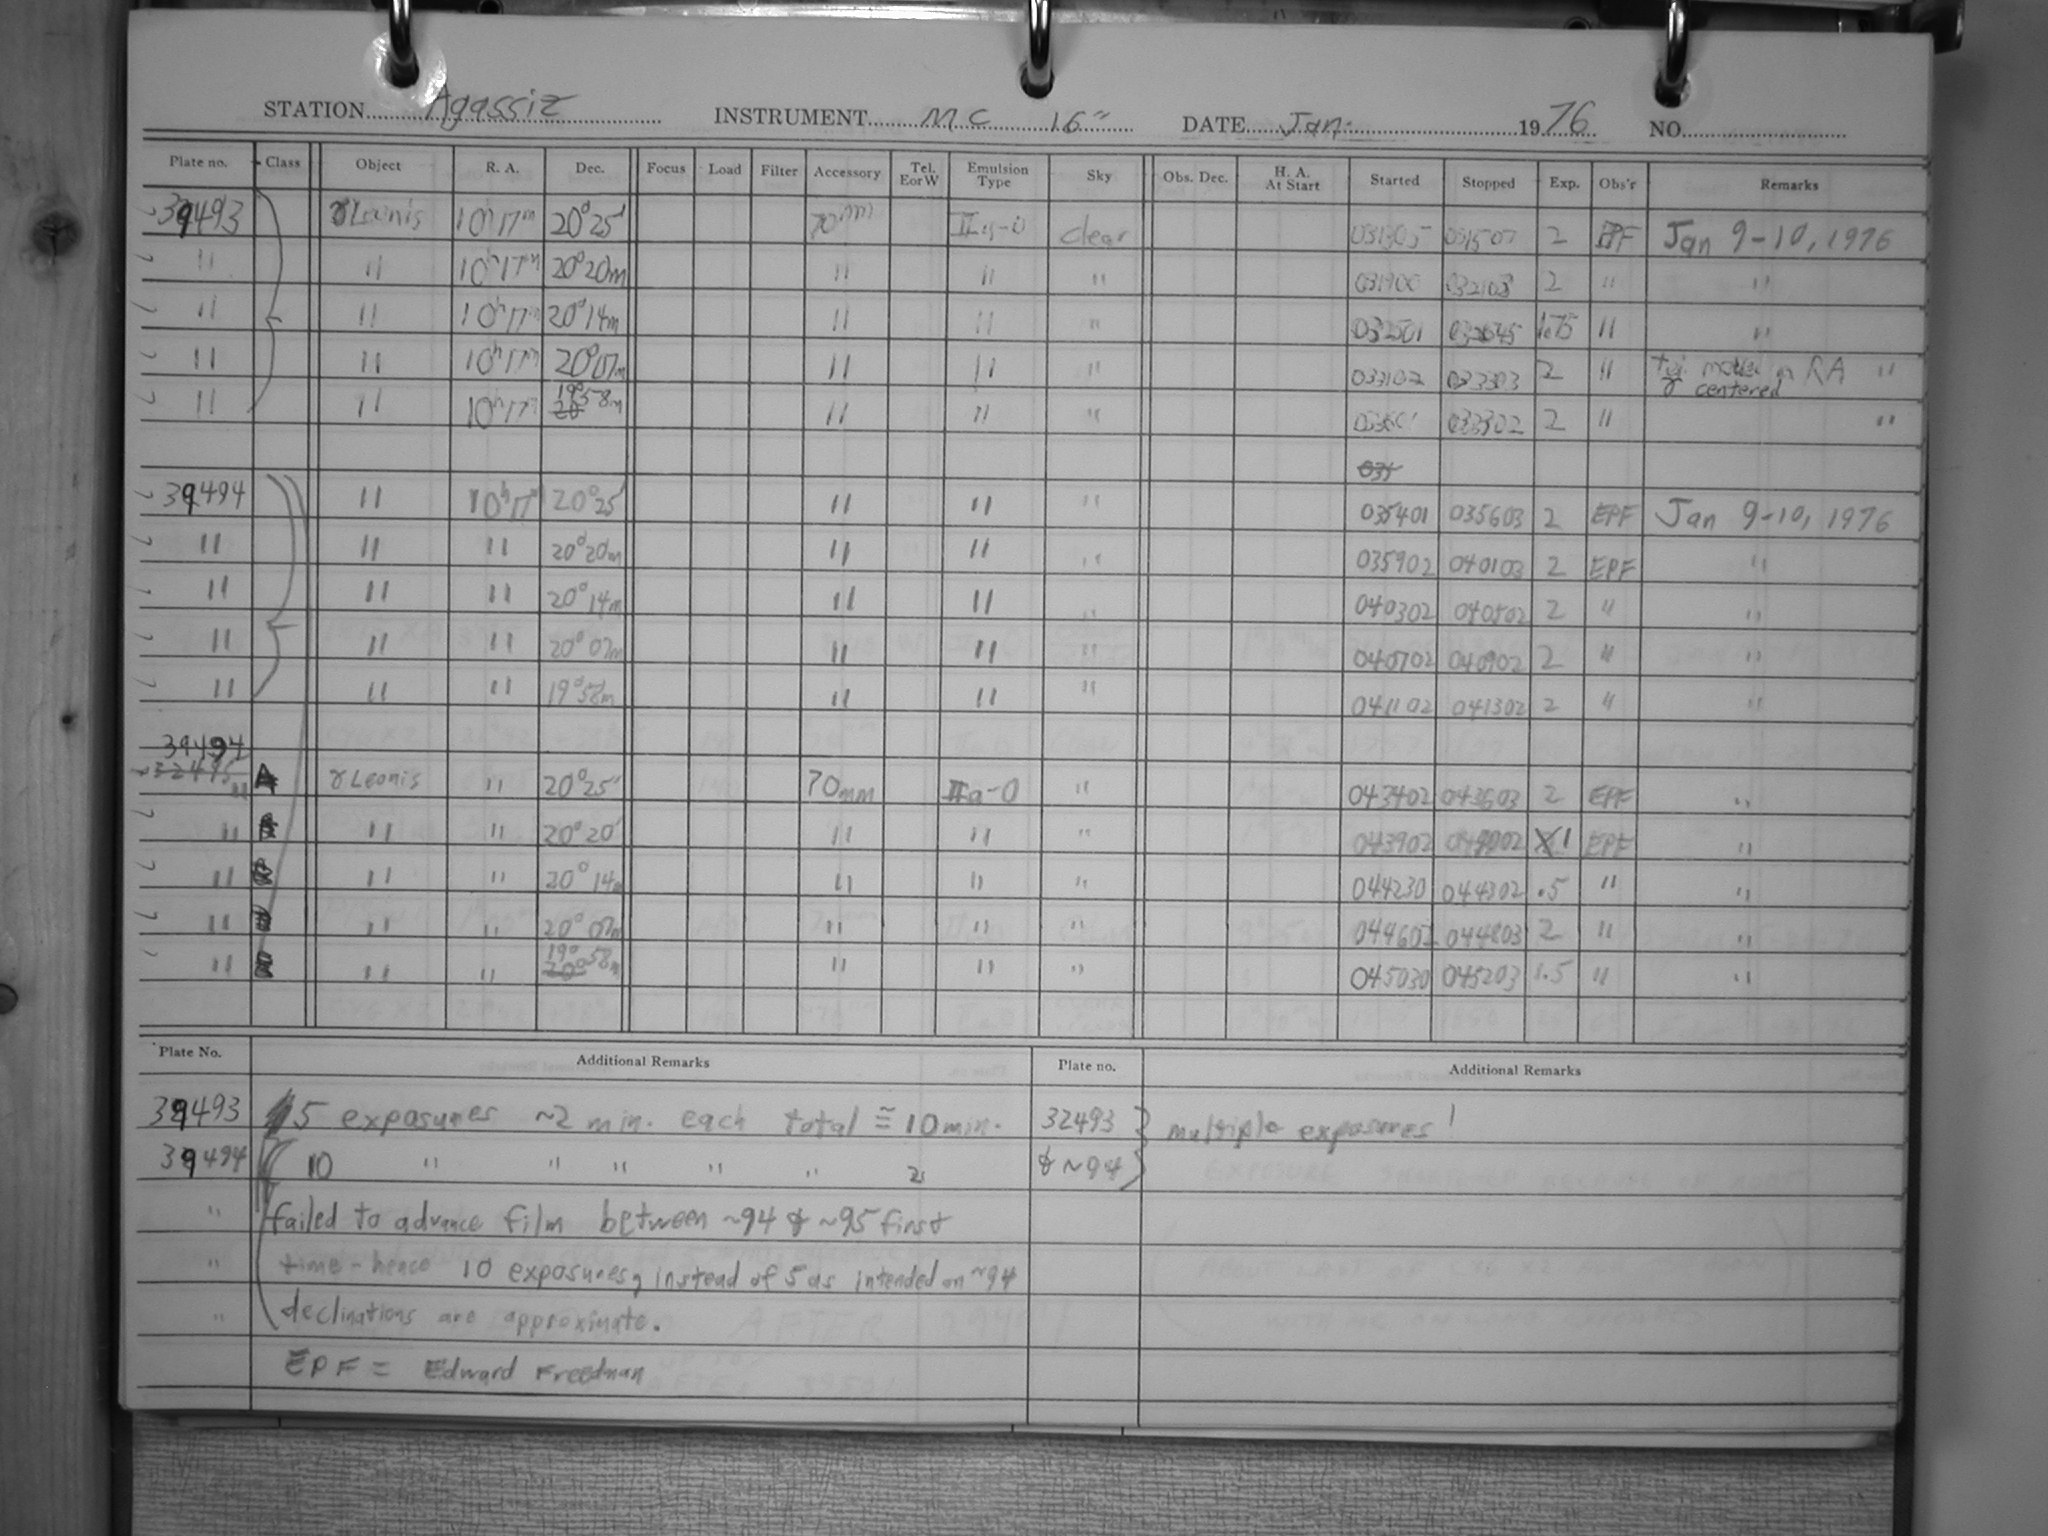 STATION Agassiz INSTRUMENT MC 16" DATE Jan. 1976 NO.
Plate no. Class Object R. A. Dec. Focus Load Filter Accessory Tel. E or W Emulsion Type Sky Obs. Dec. H. A. At Start Started Stopped Exp. Obs'r Remarks
39493 γ Leonis 10h 17m 20° 25' 70mm IIa-O clear 031305 031507 2 EPF Jan 9-10, 1976
" " 10h 17m 20° 20m " " " 031900 032103 2 " "
" " 10h 17m 20° 14m " " " 032501 032645 1.75 " "
" " 10h 17m 20° 07m " " " 033102 033303 2 " in RA "
γ centered
" " 10h 17m 19° 58m " " " 033802 2 " "
39494 " 10h 17m 20° 25' " " " 035401 035603 2 EPF Jan 9-10, 1976
" " " 20° 20m " " " 035902 040103 2 EPF "
" " " 20° 14m " " " 040302 040502 2 " "
" " " 20° 07m " " " 040702 040902 2 " "
" " " 19° 58m " " " 041102 041302 2 " "
39494
32495
" γ Leonis " 20° 25' 70mm IIa-O " 043402 043603 2 EPF "
" " " 20° 20' " " " 043902 1 EPF "
" " " 20° 14m " " " 044230 044302 .5 " "
" " " 20° 07m " " " 044602 044803 2 " "
" " " 19° 58m " " " 045030 045203 1.5 " "
Plate No. Additional Remarks Plate no. Additional Remarks
39493 5 exposures ~2 min. each total ≅ 10 min. 32493 multiple exposures!
39494 10 " " " " " & ~94
" failed to advance film between ~94 & ~95 first
" time - hence 10 exposures, instead of 5 as intended on ~94
" declinations are approximate.
EPF = Edward Freedman